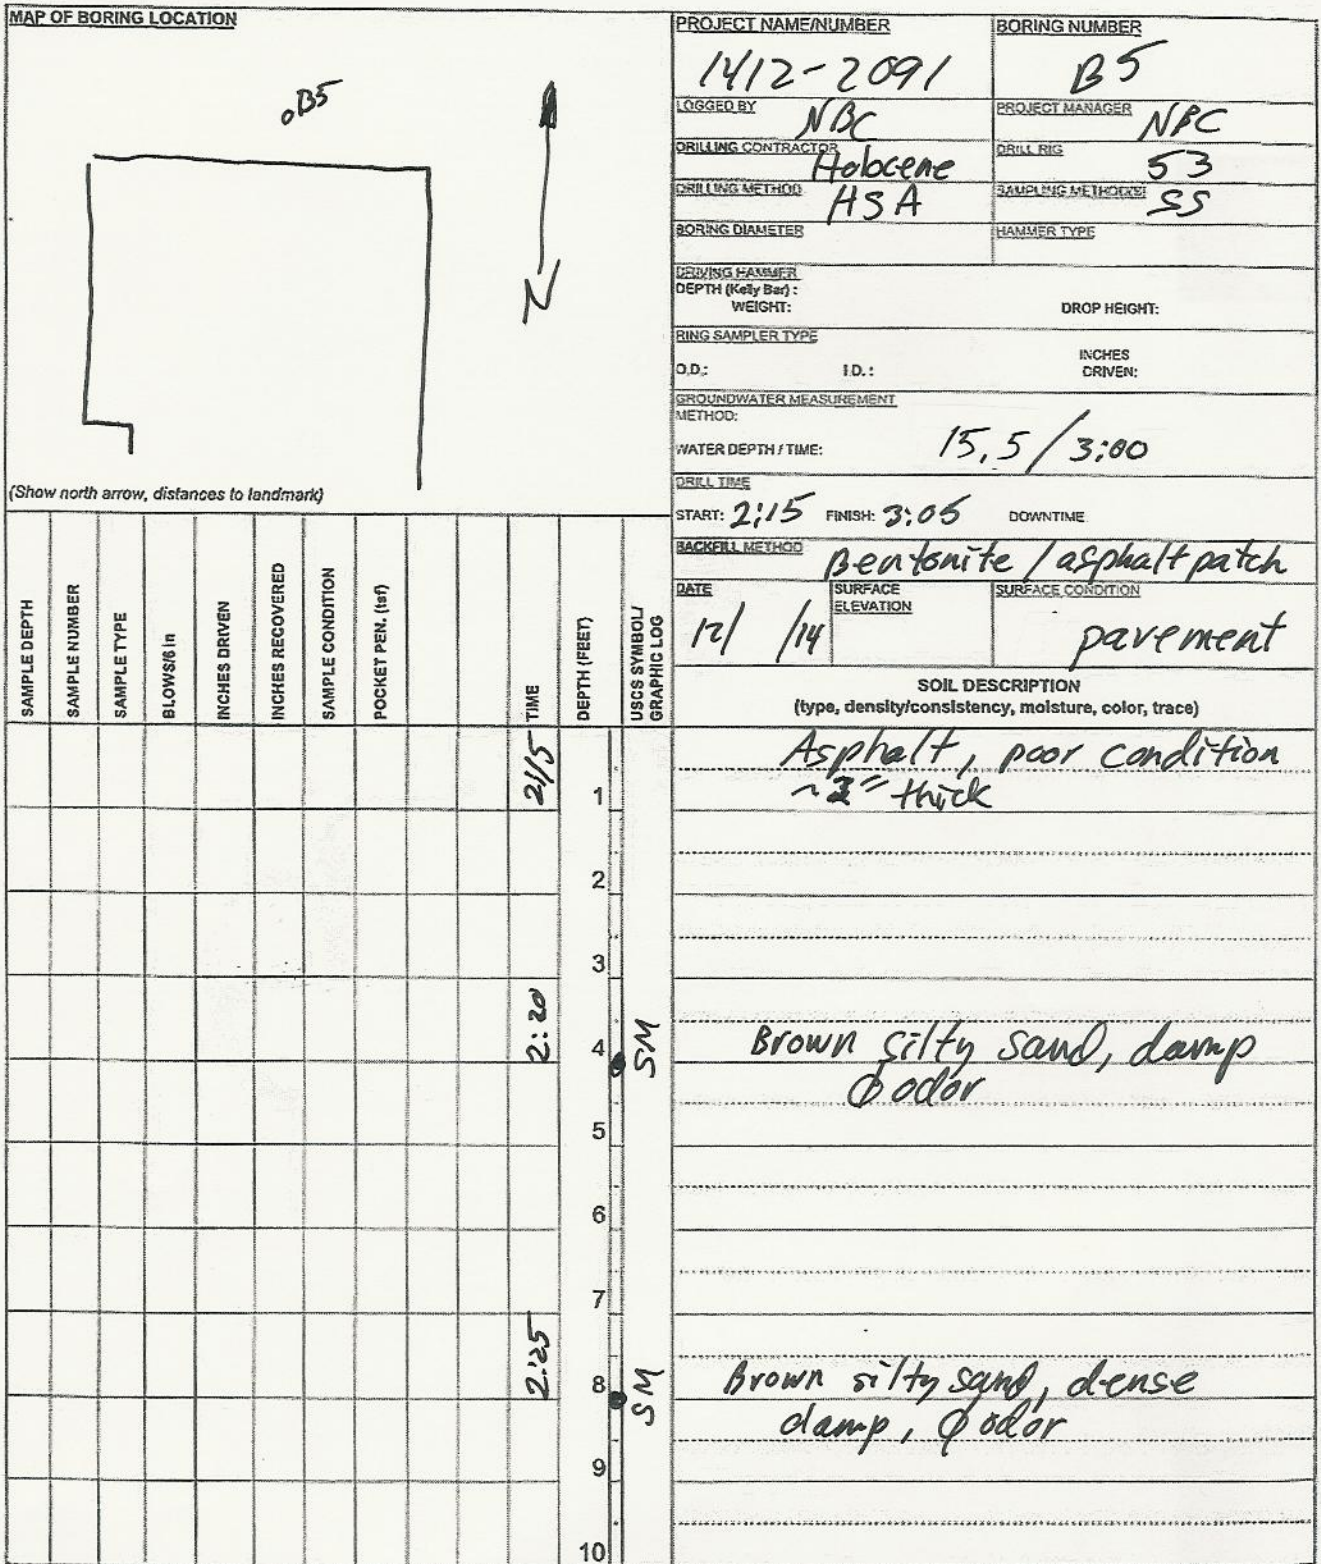 MAP OF BORING LOCATION
B5
N
(Show north arrow, distances to landmark)
PROJECT NAME/NUMBER
1412-2091
BORING NUMBER
B5
LOGGED BY
NBC
PROJECT MANAGER
NBC
DRILLING CONTRACTOR
Holocene
DRILL RIG
53
DRILLING METHOD
HSA
SAMPLING METHOD(S)
SS
BORING DIAMETER
HAMMER TYPE
DRIVING HAMMER
DEPTH (Kelly Bar) :
WEIGHT:
DROP HEIGHT:
RING SAMPLER TYPE
O.D.:
I.D. :
INCHES
DRIVEN:
GROUNDWATER MEASUREMENT
METHOD:
WATER DEPTH / TIME:
15.5 / 3:00
DRILL TIME
START: 2:15 FINISH: 3:05 DOWNTIME
BACKFILL METHOD
Bentonite / asphalt patch
DATE
12/ /14
SURFACE
ELEVATION
SURFACE CONDITION
pavement
SAMPLE DEPTH
SAMPLE NUMBER
SAMPLE TYPE
BLOWS/6 in
INCHES DRIVEN
INCHES RECOVERED
SAMPLE CONDITION
POCKET PEN. (tsf)
TIME
DEPTH (FEET)
USCS SYMBOL/
GRAPHIC LOG
SOIL DESCRIPTION
(type, density/consistency, moisture, color, trace)
2:15
1
Asphalt, poor condition
thick
2
3
2:20
4
SM
Brown silty sand, damp
∅ odor
5
6
7
2:25
8
SM
Brown silty sand, dense
damp, ∅ odor
9
10